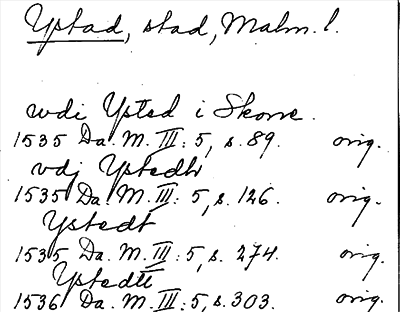 Ystad, stad, Malm. l.
wdi Ysted i Skone.
1535 Da. M. III: 5, s. 89. orig.
vdj Ystedh
1535 Da M. III: 5, s. 126. orig.
Ystedt
1535 Da. M. III: 5, s. 274. orig.
Ystedtt
1536 Da. M. III: 5, s. 303. orig.